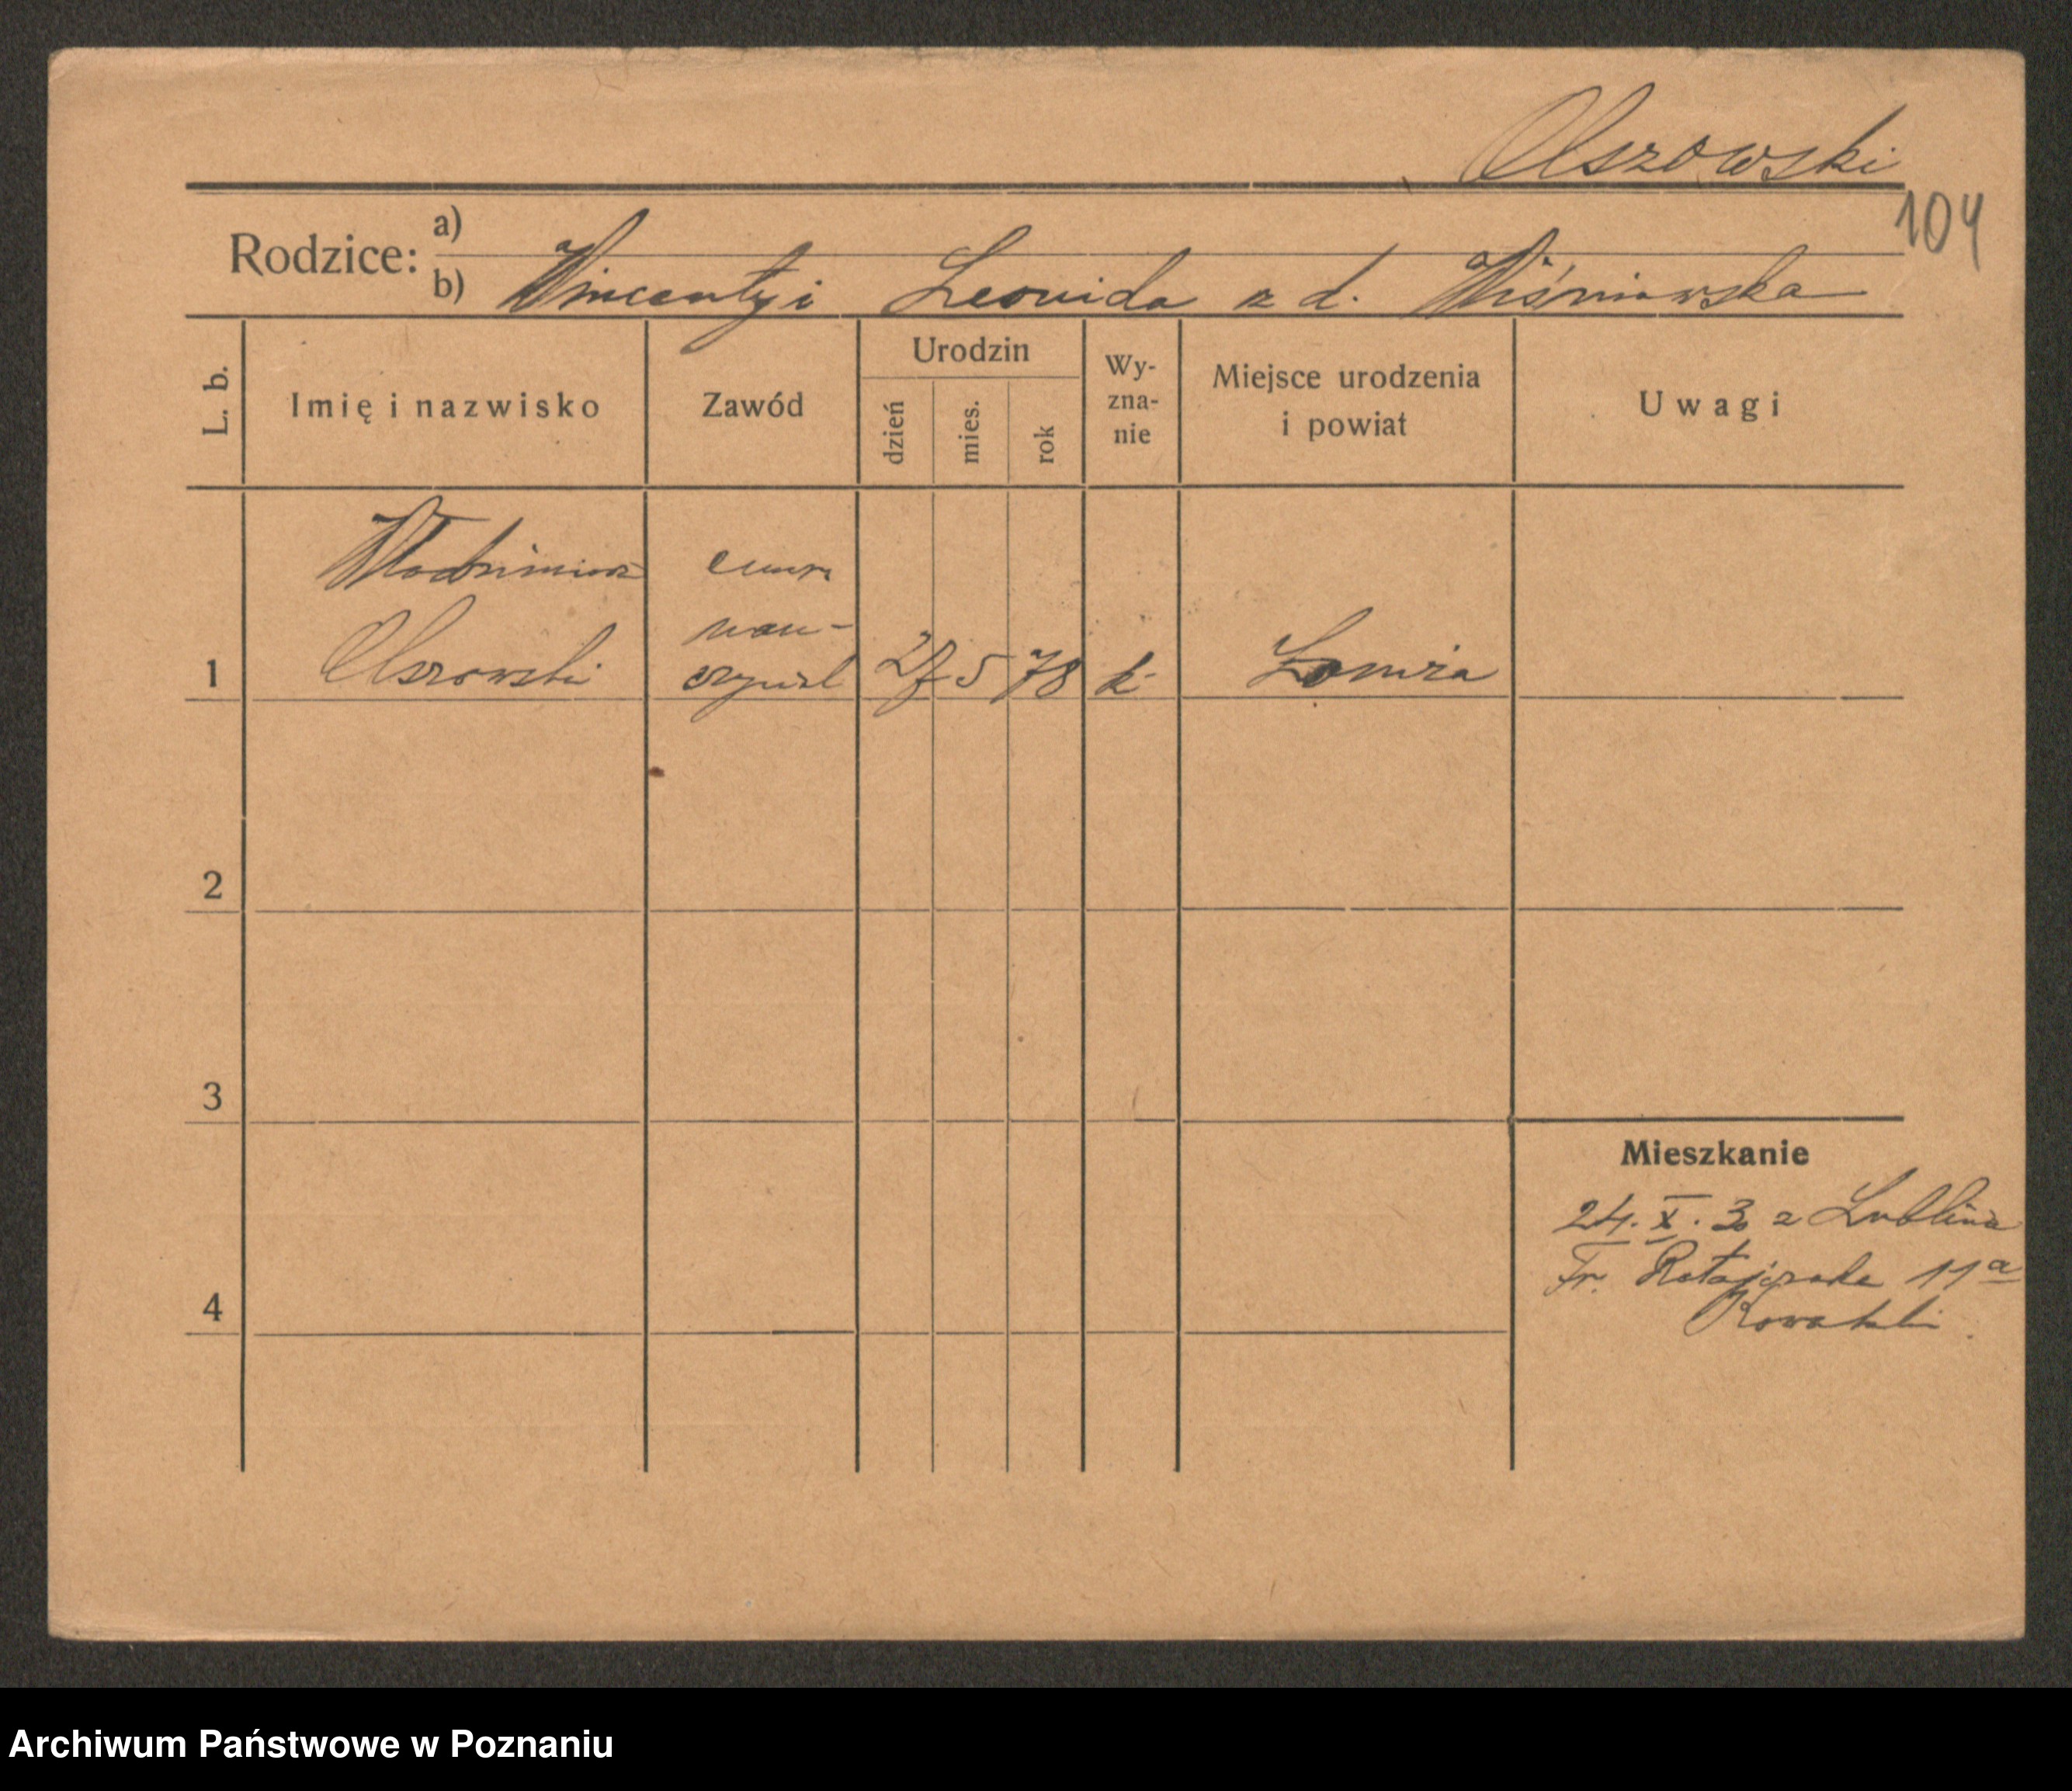 Olszowski
104
Rodzice: a)
b) Wincenty i Leonida z d. Wiśniewska
L. b.
Imię i nazwisko
Zawód
Urodzin
dzień
mies.
rok
Wy-
zna-
nie
Miejsce urodzenia
i powiat
Uwagi
Włodzimierz emer.
Olszowski nau-
1 czyciel 27 5 78 k. Łomża
2
3
Mieszkanie
24. X. 30 z Lublina
Fr. Ratajczaka 11a
4
Kowalski
Archiwum Państwowe w Poznaniu